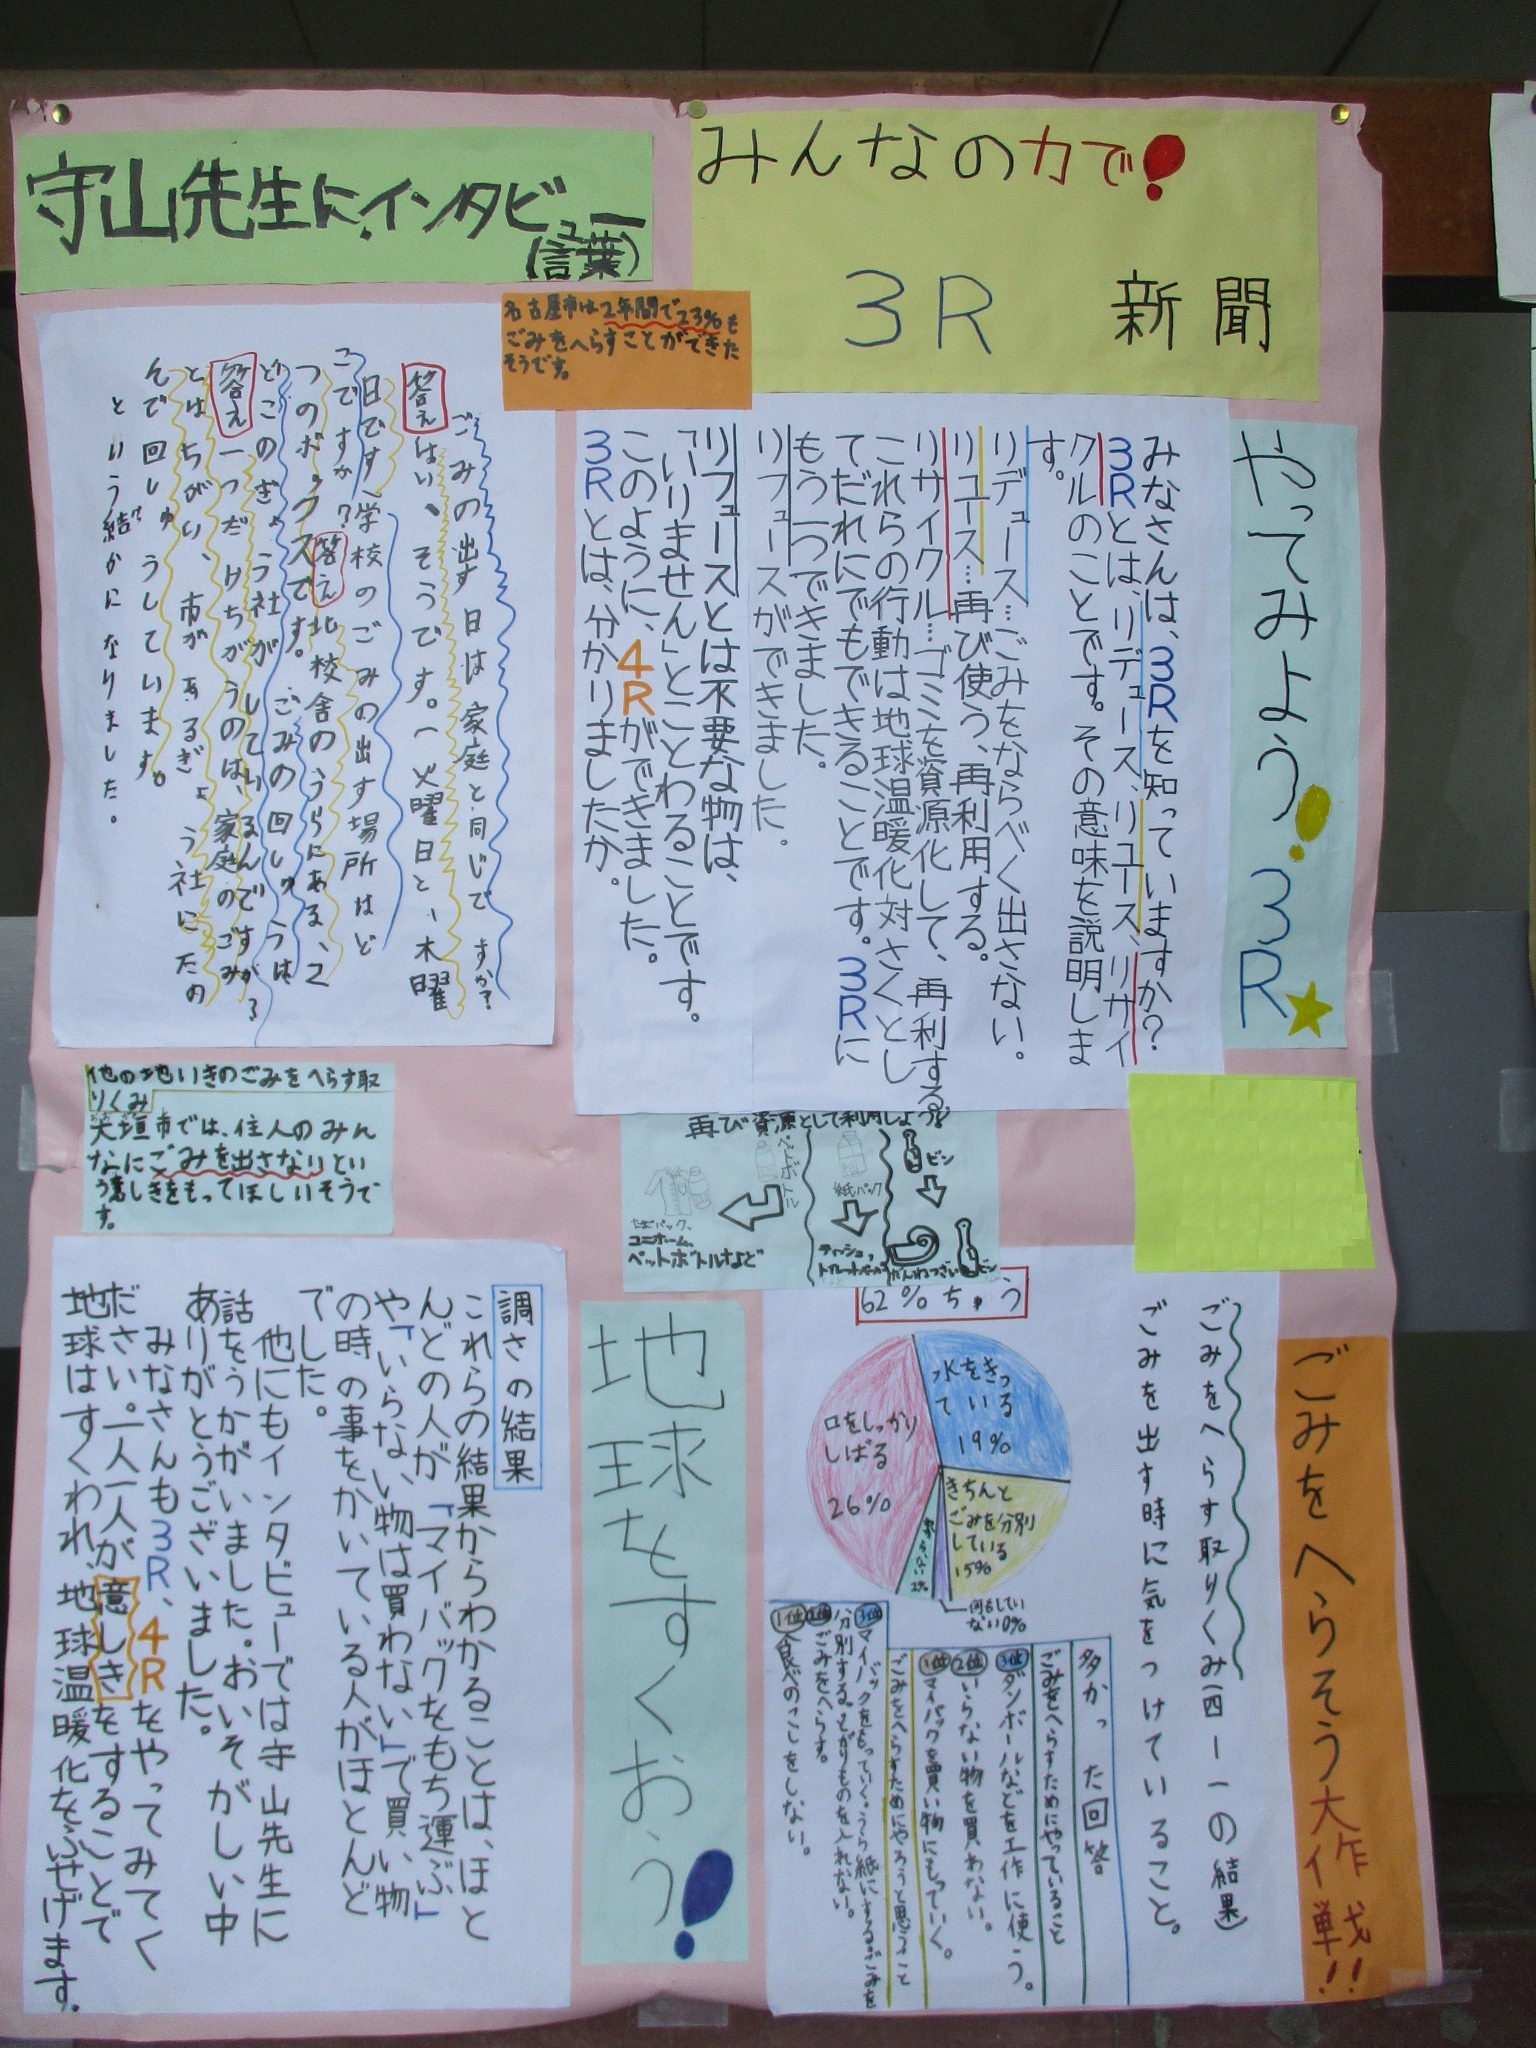 みんなの力で!
3R 新聞
やってみよう! 3R
みなさんは、3Rを知っていますか?
3Rとは、リデュース、リユース、リサイ
クルのことです。その意味を説明しま
す。
リデュース…ごみをならべく出さない。
リユース…再び使う、再利用する。
リサイクル…ゴミを資源化して、再利する。
これらの行動は地球温暖化対さくとし
てだれにでもできることです。3Rに
もう一つできました。
リフュースができました。
リフュースとは不要な物は、
「いりません」とことわることです。
このように、4Rができました。
3Rとは、分かりましたか。
守山先生にインタビュー
(言葉)
名古屋市は2年間で23%も
ごみをへらすことができた
そうです。
ごみの出す日は家庭と同じですか?
答えはい、そうです。(火曜日と、木曜
日です)学校のごみの出す場所はど
こですか?答え北校舎のうらにある、2
つのボックスです。ごみの回しゅうは
どこのぎょう社がしているんですか?
答え一つだけちがうのは、家庭のごみ
とはちがい、市がぁるぎょう社にたの
んで回しゅうしています。
という結かになりました。
他の地いきのごみをへらす取
りくみ
大垣市では、住人のみん
なにごみを出さないとい
う意しきをもってほしいそうで
す。
再び資源として利用しよう
ビン
紙パック
ペットボトル
ビン
ティッシュ、
たまパック、
ユニホーム、
ペットボトルなど
ごみをへらそう大作戦!!
ごみをへらす取りくみ(四ー一の結果)
ごみを出す時に気をつけていること。
62%ちゅう
水をきっ
ている
19%
口をしっかり
しばる
26%
きちんと
ごみを分別
している
15%
何もしてい
ない0%
多かった回答
ごみをへらすためにやっていること
3位ダンボールなどを工作に使う。
2位いらない物を買わない。
1位マイバックを買い物にもっていく。
ごみをへらすためにやろうと思うこと
3位マイバックをもっていく・うら紙にする・ごみを
分別する・とがりものを入れない。
2位ごみをへらす。
1位食べのこしをしない。
地球をすくおう!
調さの結果
これらの結果からわかることは、ほと
んどの人が「マイバックをもち運ぶ」
や「いらない物は買わない」で買い物
の時の事をかいている人がほとんど
でした。
他にもインタビューでは守山先生に
話をうかがいました。おいそがしい中
ありがとうございました。
みなさんも3R、4Rをやってみてく
ださい。一人一人が意しきをすることで
地球はすくわれ、地球温暖化をふせげます。